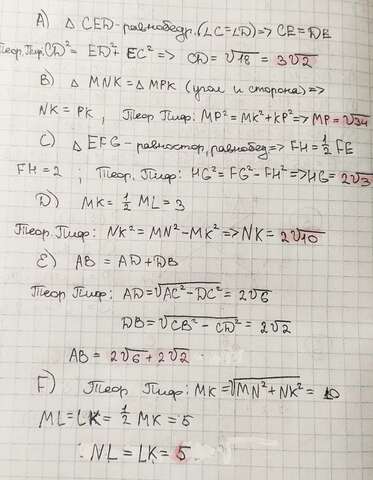 A) △ CED-равнобедр. (∠C=∠D)=> CE=DE
Теор. Пиф. CD²= ED²+ EC² => CD=√18 = 3√2
B) △ MNK=△ MPK (угол и сторона)=>
NK=PK, Теор. Пиф: MP²=MK²+KP²=>MP=√34
C) △ EFG-равностор, равнобед=> FH=½ FE
FH=2 ; Теор. Пиф: HG²=FG²-FH²=>HG=2√3
D) MK=½ ML=3
Теор. Пиф: NK²=MN²-MK²=>NK=2√10
E) AB=AD+DB
Теор Пиф: AD=√AC²-DC² = 2√6
DB=√CB²-CD² = 2√2
AB=2√6+2√2
F) Теор Пиф: MK=√MN²+NK² = 10
ML=LK=½ MK=5
NL=LK=5